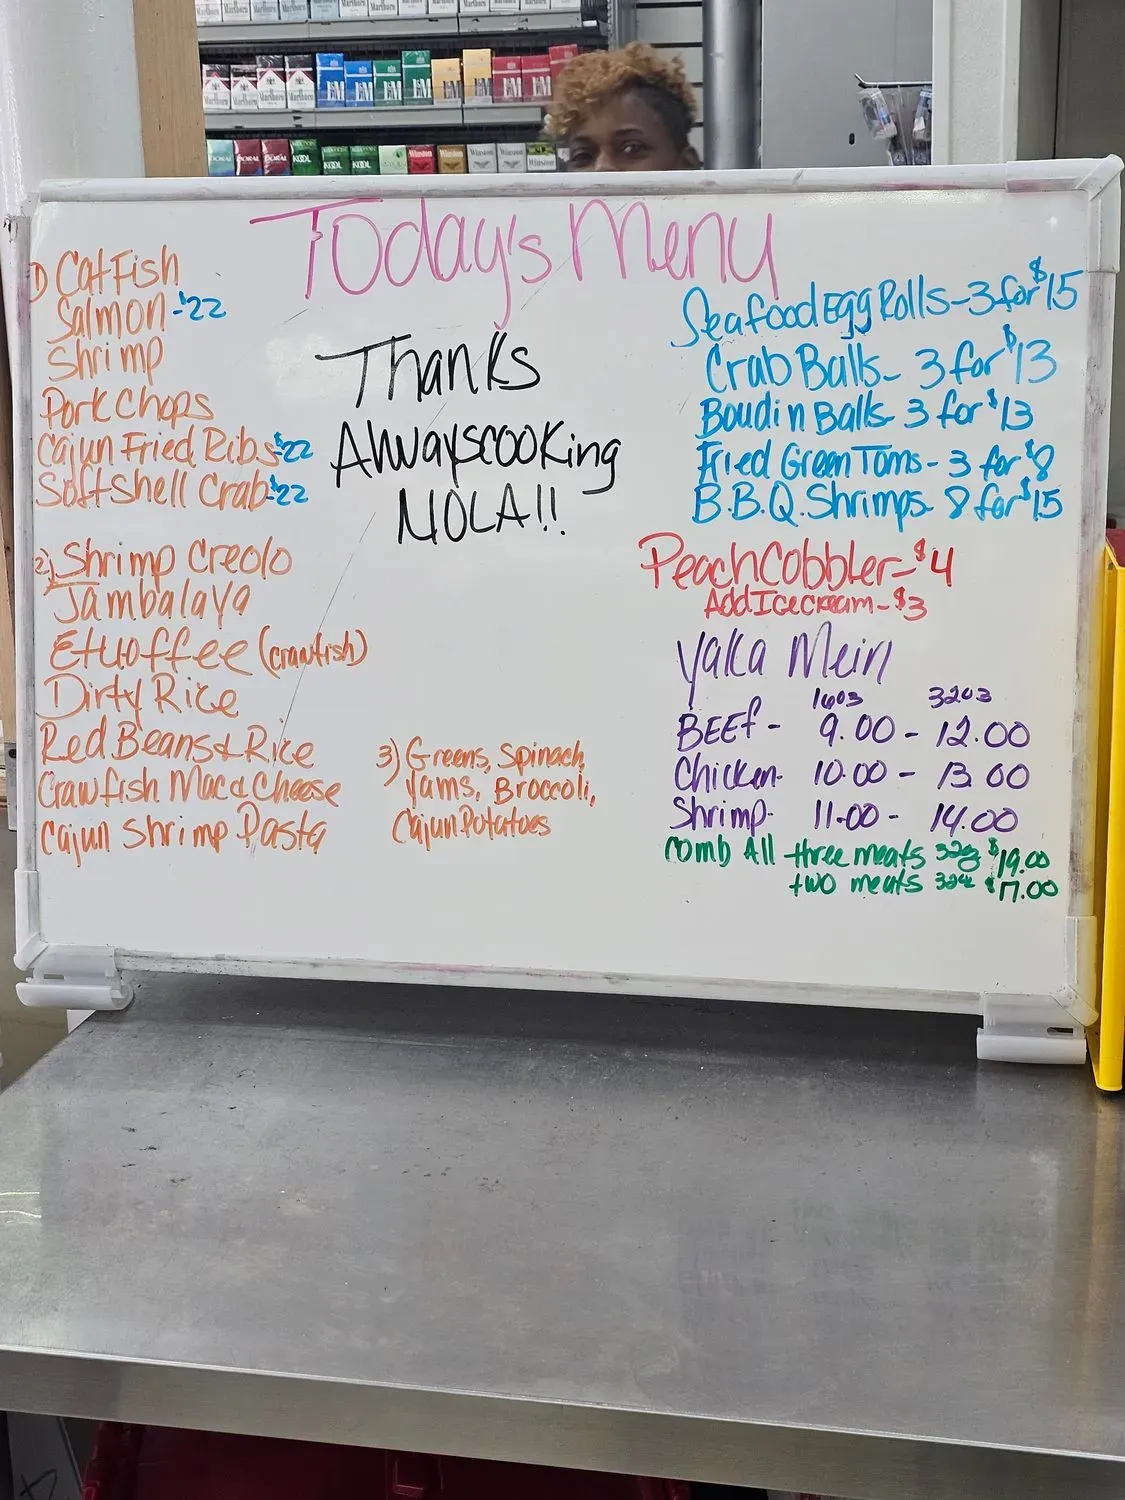 Marlboro Marlboro Marlboro
L&M L&M L&M L&M L&M L&M
DORAL DORAL KOOL KOOL KOOL Winston Winston Winston Winston
Today's Menu
1) CatFish
Salmon - $22
Shrimp
Pork Chops
Cajun Fried Ribs - $22
Soft Shell Crab - $22
2) Shrimp Creolo
Jambalaya
Etuoffee (crawfish)
Dirty Rice
Red Beans & Rice
Crawfish Mac & Cheese
Cajun Shrimp Pasta
Thanks
Alwayscooking
NOLA!!
3) Greens, Spinach,
Yams, Broccoli,
Cajun Potatoes
Seafood Egg Rolls - 3 for $15
Crab Balls - 3 for $13
Boudin Balls - 3 for $13
Fried Green Toms - 3 for $8
B.B.Q. Shrimps - 8 for $15
Peach Cobbler - $4
Add Icecream - $3
Yaka Mein
16oz 32oz
BEEf - 9.00 - 12.00
Chicken - 10.00 - 13.00
Shrimp - 11.00 - 14.00
Comb All three meats 32oz $19.00
two meats 32oz $17.00